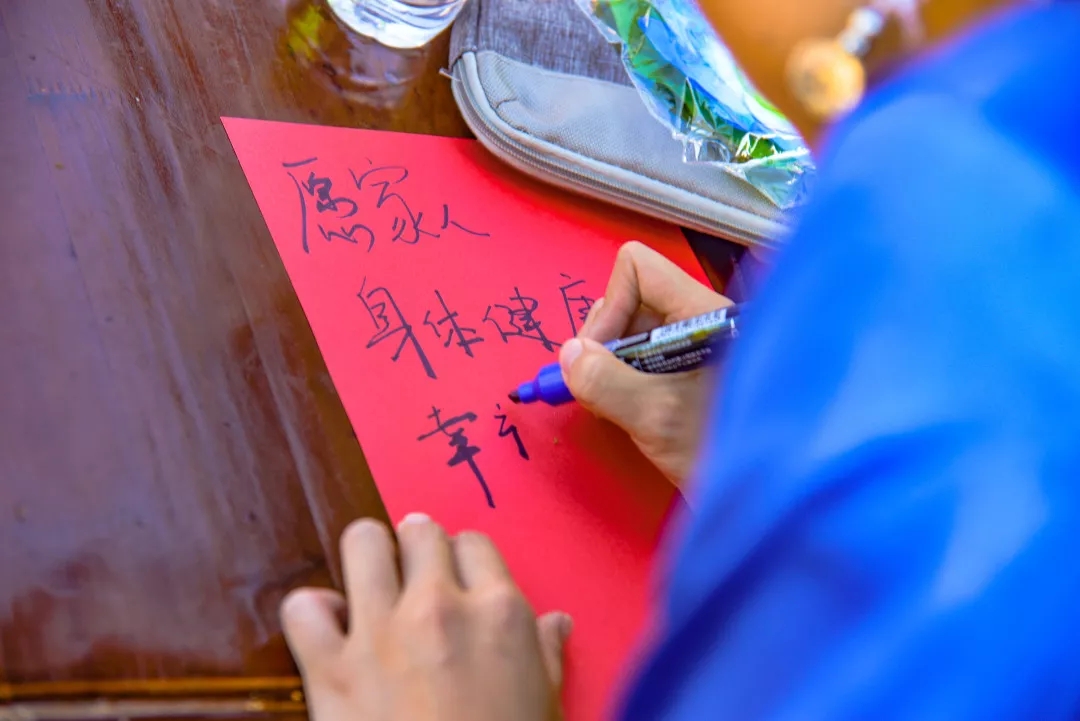 愿家人
身体健康
幸